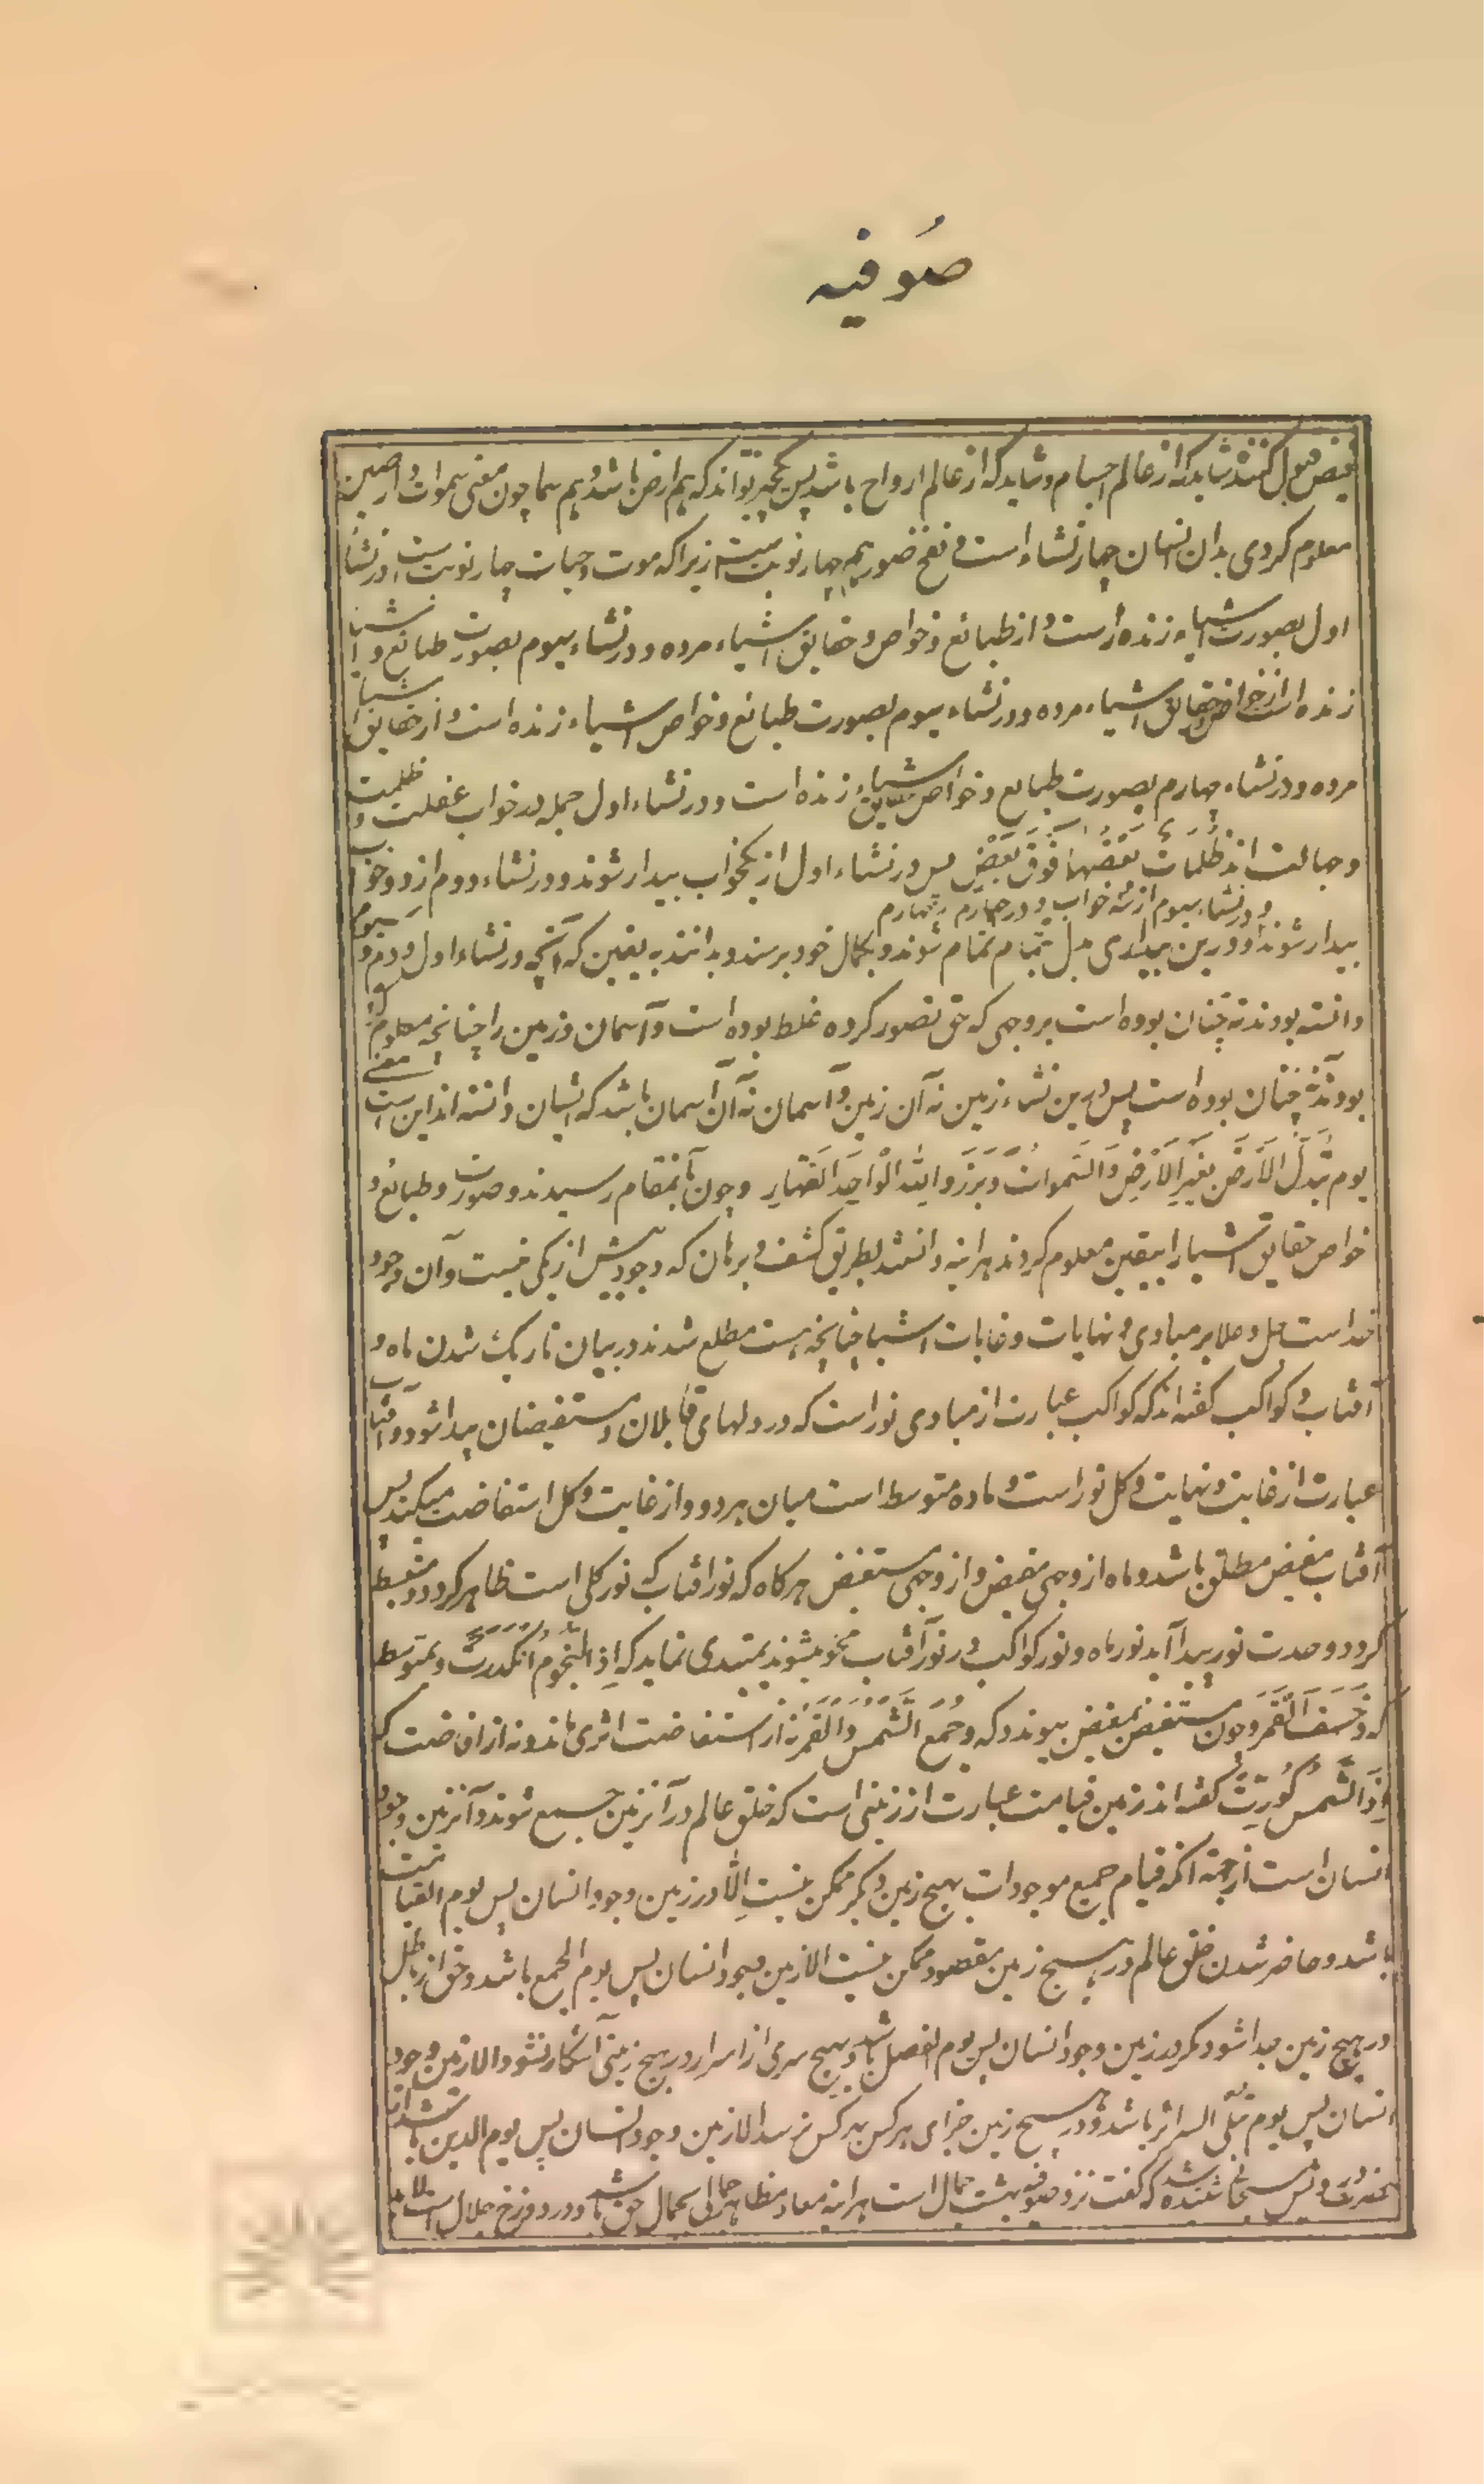 صُوفیه
فیض قبول کننده شاید که از عالم اجسام و شاید که از عالم ارواح باشد پس یکچیز تواند که هم ارض باشد و هم سما چون معنی سموات و ارضین
معلوم کردی بدان انسان چهار نشاء است و نفخ صور هم چهار نوبت است زیرا که موت و حیات چهار نوبت است در نشأ
اول بصورت اشیاء زنده است و از طبائع و خواص و حقایق اشیاء مرده و در نشاء سیوم بصورت طبائع و اشیا
زنده است از خواص و حقایق اشیاء مرده و در نشاء سیوم بصورت طبائع و خواص اشیاء زنده است و از حقایق اشیا
مرده و در نشاء چهارم بصورت طبایع و خواص حقایق اشیاء زنده است و در نشاء اول جمله در خواب غفلت و ظلمت
و جهالت اند ظُلُمَاتٌ بَعْضُهَا فَوْقَ بَعْضٍ پس در نشاء اول از یکخواب بیدار شوند و در نشاء دوم از دو خواب
و در نشاء سیوم از سه خواب و در چهارم از چهارم
بیدار شوند و درین بیداری دل بتمام تمام شوند و بکمال خود برسند و بدانند به یقین که آنچه در نشاء اول و دوم و سیوم
دانسته بودند نه چنان بوده است بر وجهی که حق تصور کرده غلط بوده است و آسمان و زمین را چنانچه معلوم کرده
بودند نه چنان بوده است پس درین نشاء زمین نه آن زمین و آسمان نه آن آسمان باشد که ایشان دانسته اند این است معنی
یوم تُبَدَّلُ الاَرْضُ بغَیْرِ الاَرْضِ وَالسَّموات وَبَرَزُوا لِلّه الْواحِدِ الْقَهّارِ و چون بآنمقام رسیدند و صورت و طبائع و
خواص حقایق اشیا را بیقین معلوم کردند هر اینه دانستند بطریق کشف و برهان که وجود بیش از یکی نیست و آن وجود
خداست جل و علا بر مبادی و نهایات و غایات اشیا چنانچه هست مطلع شدند در بیان تاریک شدن ماه و
آفتاب و کواکب گفته اند که کواکب عبارت از مبادی نور است که در دلهای قابلان و مستفیضان پیدا شود و آفتاب
عبارت از غایت و نهایت و کل نور است و ماده متوسط است میان هر دو و از غایت و کل استفاضت میکند پس
آفتاب مفیض مطلق باشد و ماه از وجهی مفیض و از وجهی مستفیض هر گاه که نور آفتاب که نور کلی است ظاهر گردد و منبسط
گردد و حدت نور پیدا آید نور ماه و نور کواکب در نور آفتاب محو میشوند بمبتدی نماید که اِذَ النُّجُومُ انْکَدَرَتْ و بمتوسط
که وَخَسَفَ الْقَمَر و چون مستفیض بمفیض پیوندد که وَجُمِعَ الشَّمْسُ وَالْقَمَرُ نه از استفاضت اثری ماند و نه از افاضت که
اِذَ الشَّمْسُ کُوِّرَتْ گفته اند زمین قیامت عبارت از زمینی است که خلق عالم در آنزمین جمیع شوند و آنزمین وجود
انسان است از جهة آنکه قیام جمیع موجودات بهیچ زمین دیگر ممکن نیست اِلّا در زمین وجود انسان پس یوم القیامت
باشد و حاضر شدن خلق عالم در هیچ زمین مقصود ممکن نیست الا زمین وجود انسان پس یوم الجمع باشد و حق از باطل
در هیچ زمین جدا نشود مگر در زمین وجود انسان پس یوم الفصل باشد و هیچ سری از اسرار در هیچ زمینی آشکار نشود الا زمین وجود
انسان پس یوم تبلی السرائر باشد و در هیچ زمین جزای هر کس بهر کس نرسد الا زمین وجود انسان پس یوم الدین باشد
که گفت نزد صوفیه بهشت جمال است هر اینه معاد مظاهر جمالی بجمال حق باشد و در دوزخ جلال است